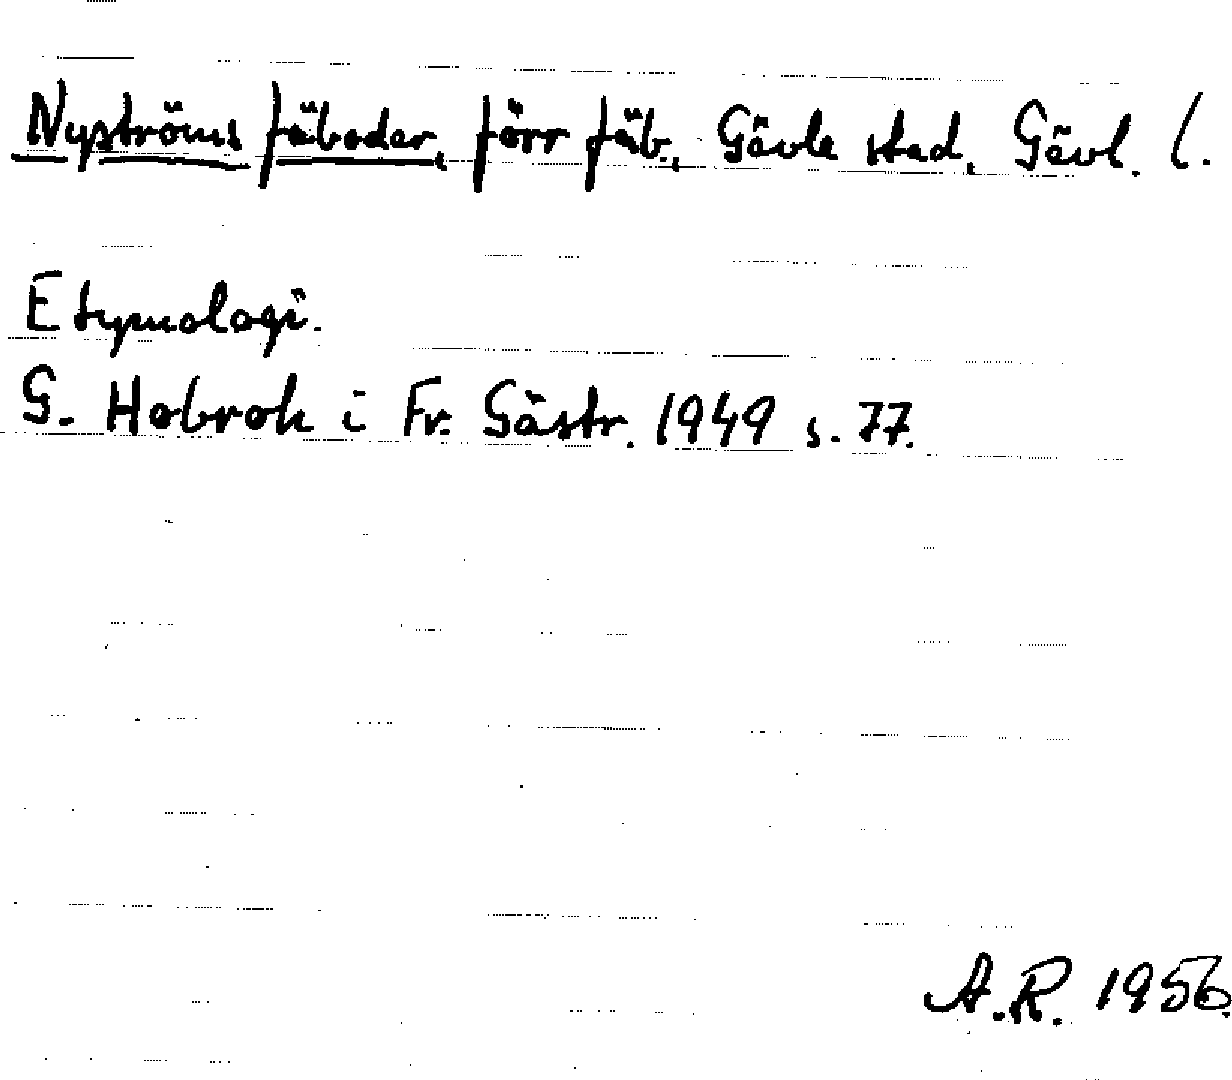 Nyströms fäboder, förr fäb., Gävle stad, Gävl. l.
Etymologi.
G. Hobroh i Fr. Gästr. 1949 s. 77.
A.R. 1956.